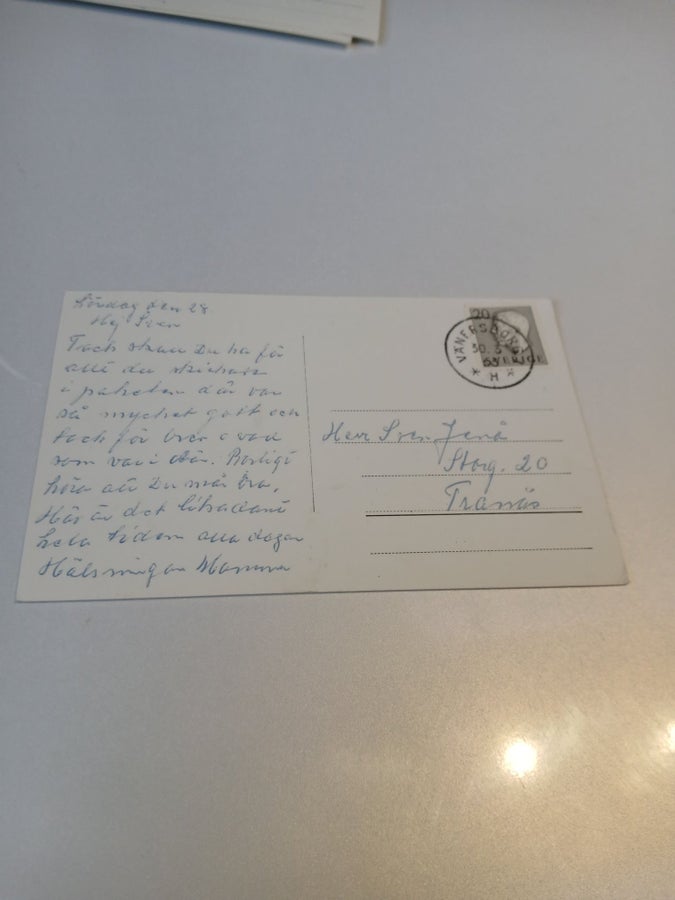 Söndag den 28
Hej Sven
Tack skall Du ha för
allt du skickade
i paketen där var
så mycket gott och
tack för brev o vad
som var i där. Roligt
höra att Du mår bra,
Här är det likadant
hela tiden alla dagar
Hälsningar Mamma
20
VÄNERSBORG
30. 3
SVERIGE
H
Herr Sven
Storg. 20
Tranås